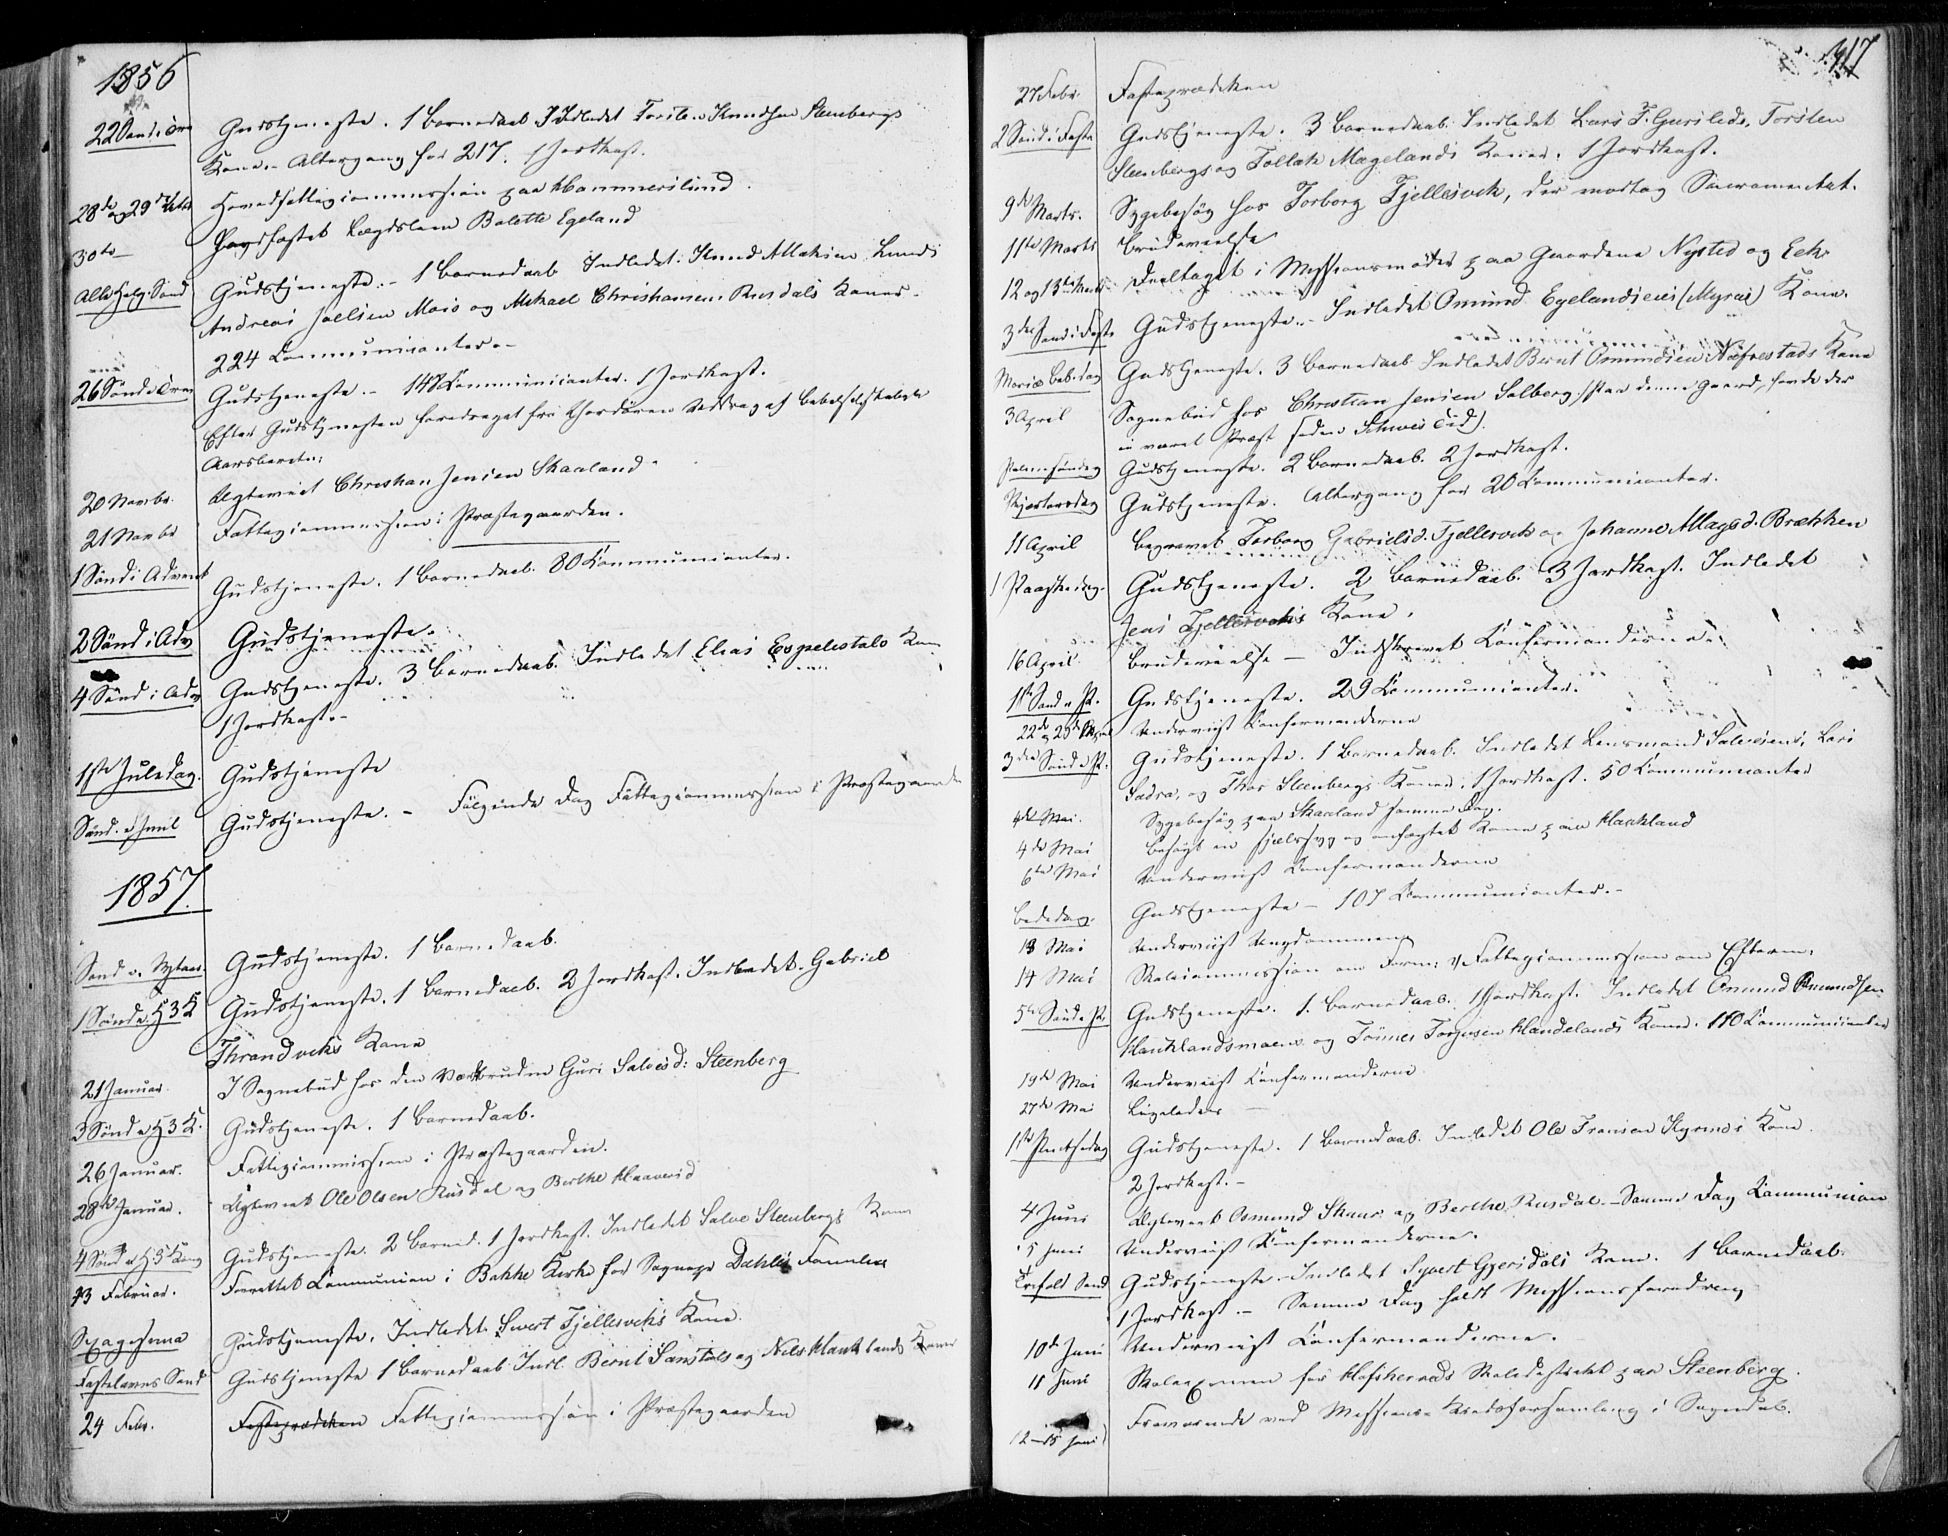 1856
22 Sønd. i Trin Gudstjeneste. 1 Barnedaab Indledet Torsten Knudsen Steenbergs
Kone. - Altergang for 217. 1 Jordkast.
28de og 29de Hovedfattigcommission paa Hammersmund.
30te Jordfæstet Lægdslem Bolette Egeland
Alle Helg. Sønd Gudstjeneste. - 1 Barnedaab Indledet: Knud Atlaksen Lunds
Andreas Joelsen Mois og Mikael Christiansen Rusdals Koner.
224 Communicanter. -
26 Sønd. i Trin Gudstjeneste. - 147 Communicanter. 1 Jordkast.
Efter Gudstjenesten foredraget fra Chordøren Uddrag af Bibelselskabets
Aarsberetn:
20 Novbr. Ægteviet Christian Jensen Skaaland.
21 Novbr Fattigcommission i Præstegaarden.
1 Sønd i Advent Gudstjeneste. 1 Barnedaab. 80 Communicanter.
2 Sønd i Adv Gudstjeneste.
4 Sønd i Adv Gudstjeneste. 3 Barnedaab. Indledet Elias Espelestals Kone
1 Jordkast. -
1ste Juledag. Gudstjeneste
Sønd. e/ Juul Gudstjeneste. - Følgende Dag Fattigcommission i Præstegaarden
1857.
Sønd e. Nytaar. Gudstjeneste. 1 Barnedaab.
1 Sønd e. H 3 K Gudstjeneste. 1 Barnedaab. 2 Jordkast. Indledet Gabriel
Thrandviks Kone
21 Januar. I Sognebud hos den Værkbrudne Guri Salvesd: Steenberg
3 Sønd e H 3 K. Gudstjeneste. 1 Barnedaab.
26 Januar. Fattigcommission i Præstegaarden.
28de Januar. Ægteviet Ole Olsen Rusdal og Berthe Haaverid
4 Sønd e H 3 Kong Gudstjeneste. 2 Barned. 1 Jordkast. Indledet Salve Steenbergs Kone
13 Februar. Forrettet Communion i Bakke Kirke for Sognepr Dahls Familie
Sexagesima Gudstjeneste. Indledet Sivert Fjellesviks Kone.
Fastelavns Sønd Gudstjeneste 1 Barnedaab Indl. Bernt Sanstøls og Nils Hauklands Koner
24 Febr. Fasteprædiken Fattigcommission i Præstegaarden
417
27 Febr. Fasteprædiken
2 Sønd i Faste Gudstjeneste. 3 Barnedaab. Indledet Lars T. Gursleds, Torsten
Steenbergs og Tollak Mægelands Koner. 1 Jordkast.
9de Marts. Sygebesøg hos Torborg Fjellesvik, der modtog Sacramentet.
11te Marts Brudevielse
12 og 13de Marts Deeltaget i Missionsmøder paa Gaardene Nysted og Eek.
3die Sønd i Faste Gudstjeneste. - Indledet Omund Egelandseies (Myras) Kone.
Mariæ Beb. dag Gudstjeneste. 3 Barnedaab Indledet Bernt Omundsen Næfrestads Kone
3 April Sognebud hos Christian Jensen Solberg (Paa denne Gaard havde der
ei været Præst siden Schwes Tid).
Palmesøndag Gudstjeneste. 2 Barnedaab. 2 Jordkast.
Skjærtorsdag Gudstjeneste. Altergang for 20 Communicanter.
11 April Begravet Torborg Gabrielsd. Fjellesvik og Johanne Atlagsd. Brækken
1 Paaskedag. Gudstjeneste. 2 Barnedaab. 3 Jordkast. Indledet
Jens Fjellesviks Kone.
16 April. Brudevielse - Indskrevet Confirmanderne.
1ste Sønd e. P. Gudstjeneste. 29 Communicanter.
22de og 23de April Underviist Confirmanderne
3die Sønd e P. Gudstjeneste. 1 Barnedaab. Indledet Lensmand Salvesens, Lars
Sadra, og Thor Steenbergs Koner. 1 Jordkast. 50 Communicanter
4de Mai. Sygebesøg paa Skaaland samme Dag.
4de Mai Besøgt en sjælesyg og anfægtet Kone paa Haukland
6te Mai Underviist Confirmanderne
Bededag. Gudstjeneste - 107 Communicanter. -
13 Mai Underviist Ungdommen
14 Mai Skolecommission om Form: og Fattigcommission om Efterm:
5te Sønd e P. Gudstjeneste. 1. Barnedaab. 1 Jordkast. Indledet Omund Omundsen
Hauklandsmoens og Tønnes Torjusen Handelands Koner. 110 Communicanter
19de Mai Underviist Confirmanderne
27de Mai Ligeledes -
1ste Pintsedag Gudstjeneste. 1 Barnedaab. Indledet Ole Fransen Kyrmos Kone.
2 Jordkast. -
4 Juni Ægteviet Osmund Skaar og Berthe Rusdal. - Samme Dag Communion
5 Juni Underviist Confirmanderne.
Trefold Sønd Gudstjeneste - Indledet Syvert Gjersdals Kone. 1 Barnedaab.
1 Jordkast. - Samme Dag holdt Missionsforedrag
10de Juni Underviist Confirmanderne.
11 Juni Skoleexamen for Hafsherreds Skoledistrikt paa Steenberg.
12-15 Juni Fraværende ved Missions-Kredsforsamling i Sogndal.